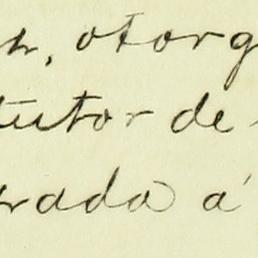 otorg
tutor de
rada á